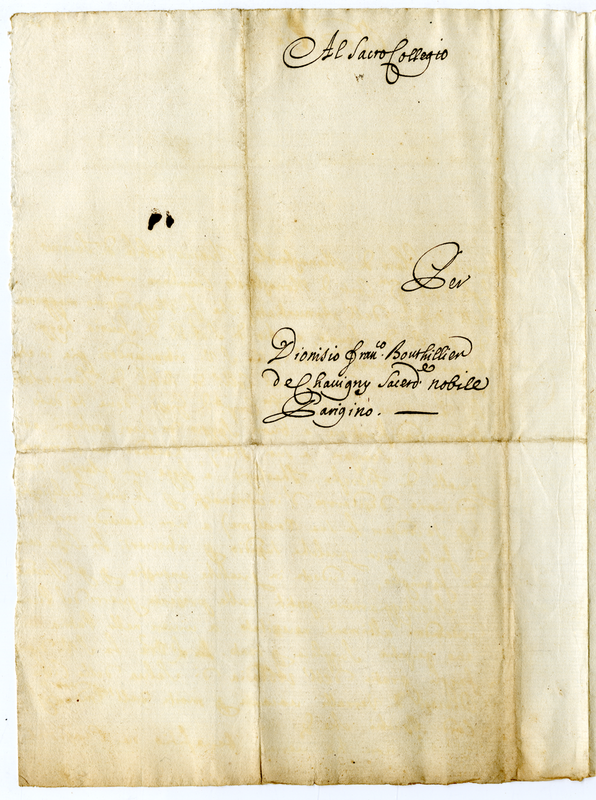 Al Sacro Collegio
Per
Dionisio Fran.co Bouthillier
de Chavigny Sacerd.e nobile
Parigino.